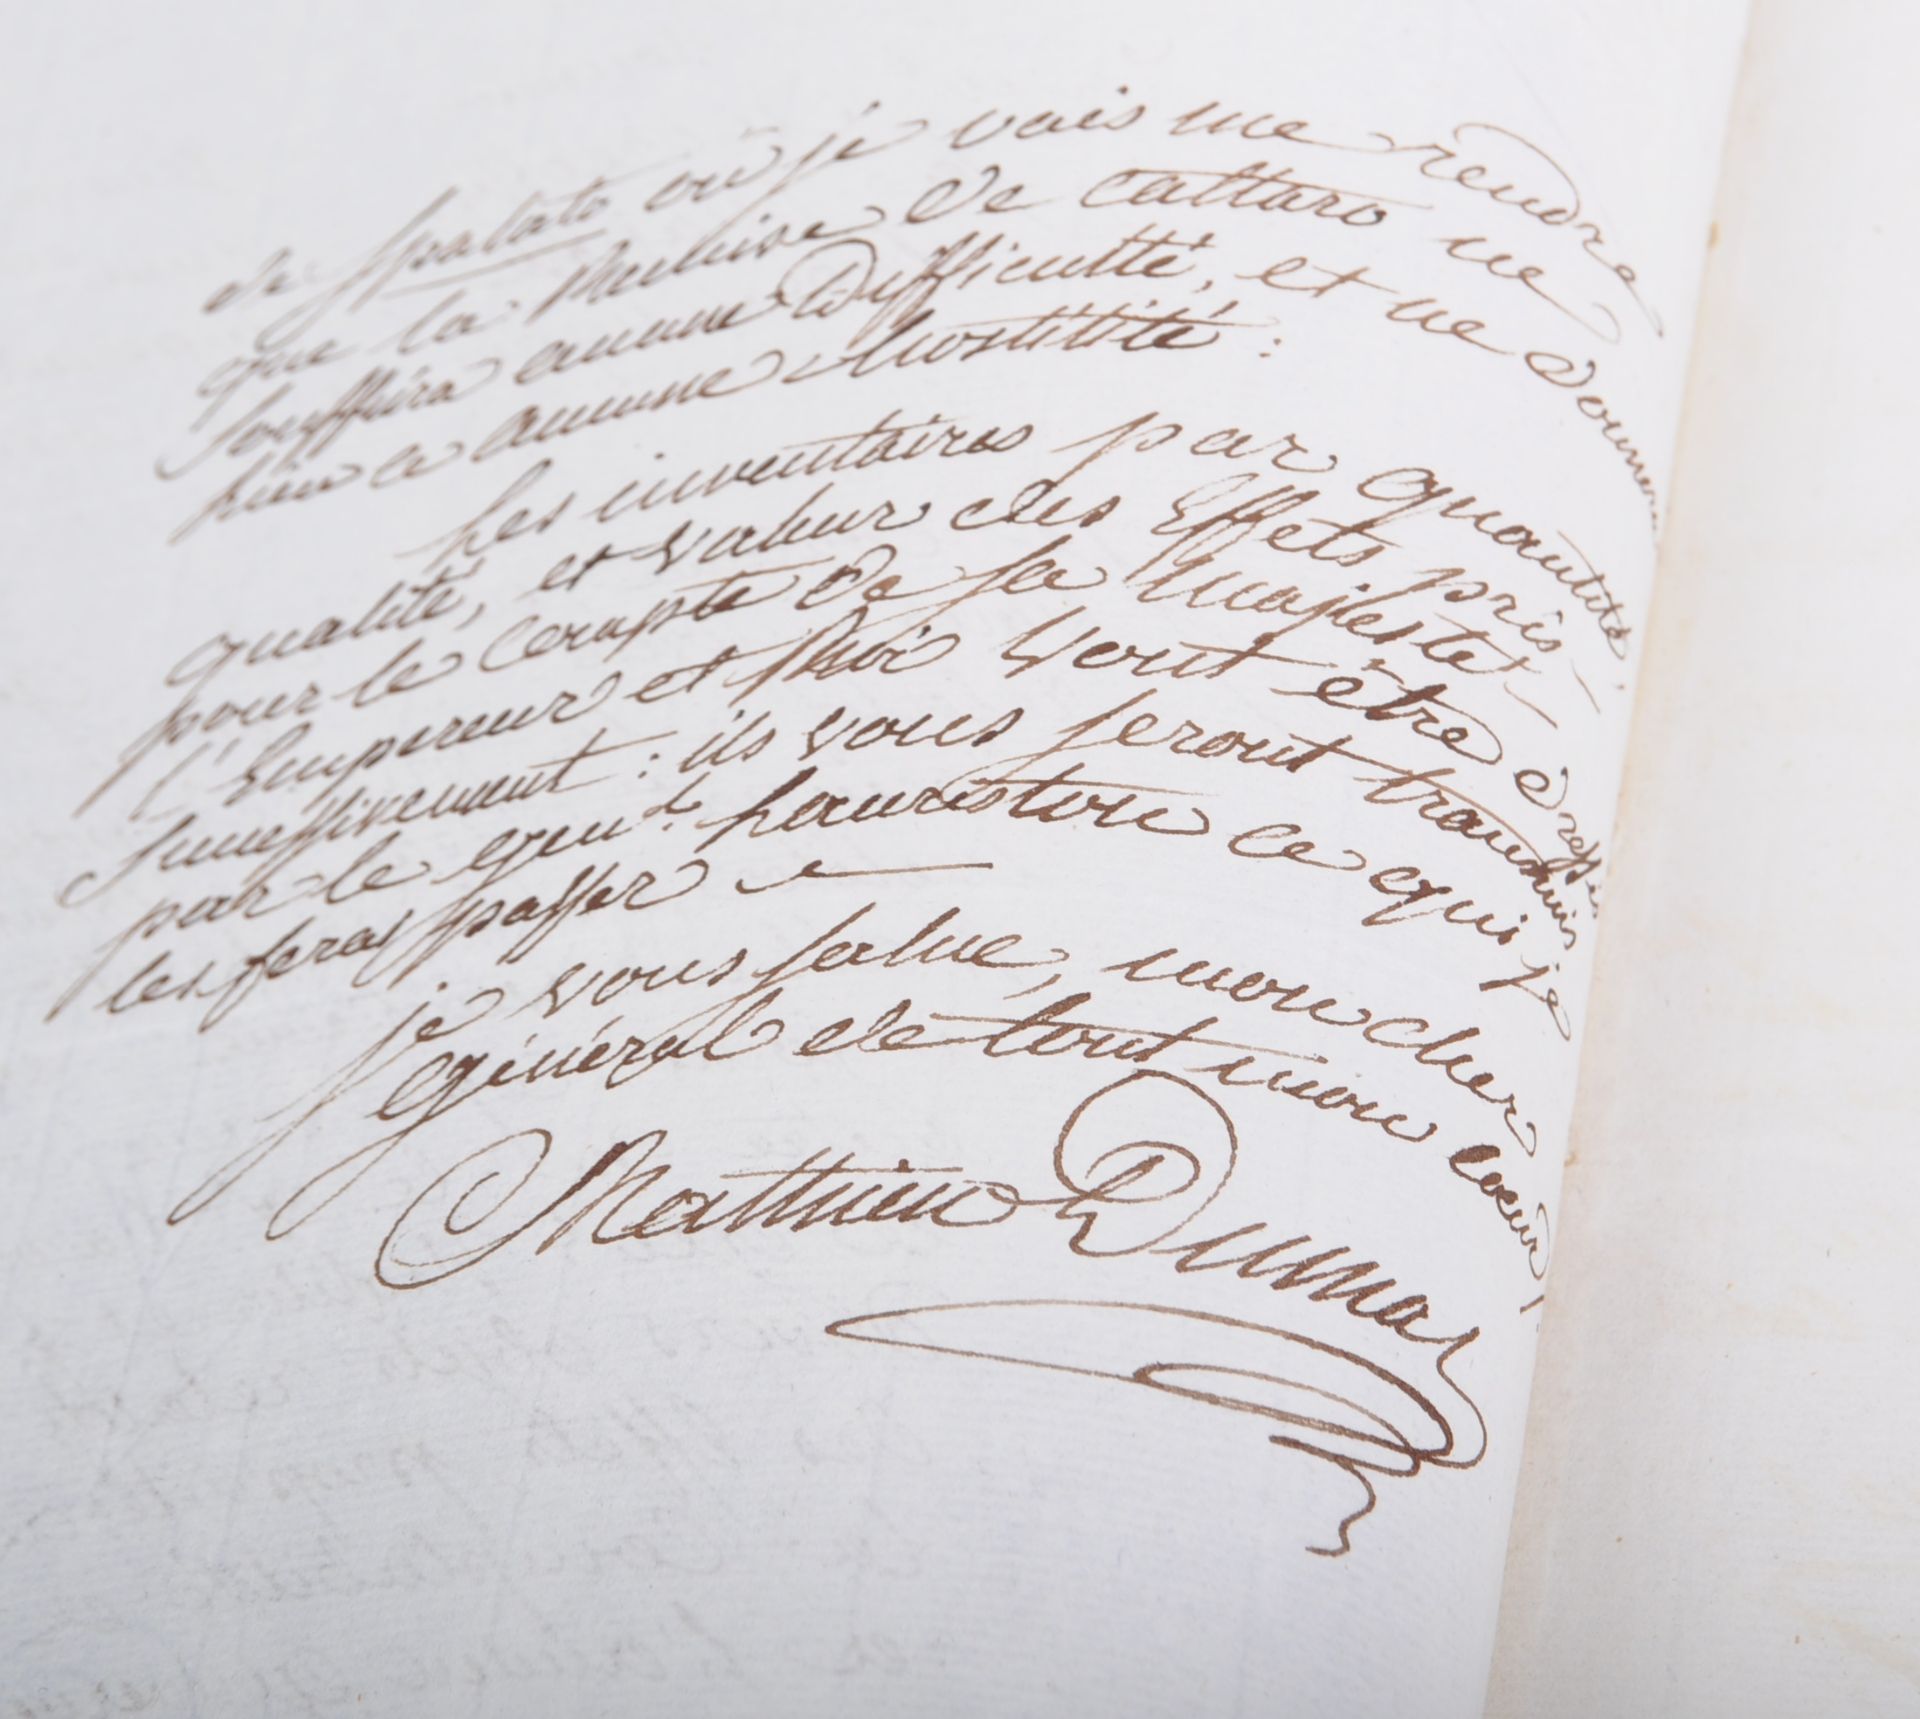 de Spalato où je vais me rendre
que la Remise de Cattaro ne
souffrira aucune Difficulté, et ne donnera
lieu à aucune hostilité :
Les inventaires par quantité,
qualité, et valeur des Effets pris
pour le Compte de Sa Majesté
l'Empereur et Roi Vont être dressés
Successivement : ils vous seront transmis
par le Gén.l Lauriston à qui je
les feras passer
je vous salue, mon cher
général de tout mon coeur
Mathieu Dumas